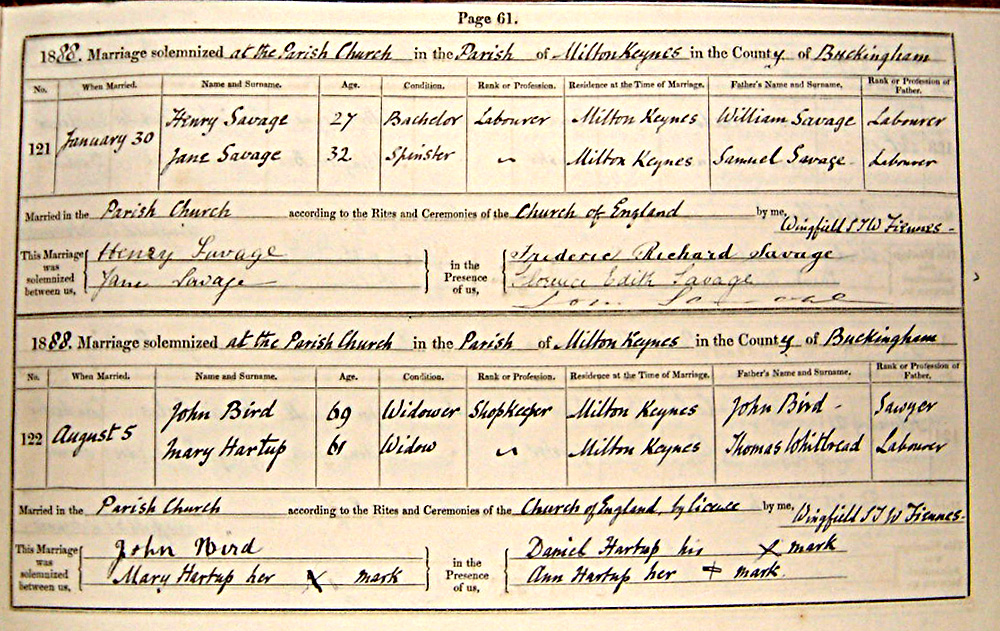 Page 61.
1888. Marriage solemnized at the Parish Church in the Parish of Milton Keynes in the County of Buckingham
No. When Married. Name and Surname. Age. Condition. Rank or Profession. Residence at the Time of Marriage. Father's Name and Surname. Rank or Profession of Father.
121 January 30 Henry Savage 27 Bachelor Labourer Milton Keynes William Savage Labourer
Jane Savage 32 Spinster Milton Keynes Samuel Savage Labourer
Married in the Parish Church according to the Rites and Ceremonies of the Church of England by me, Wingfield S T W Fiennes
This Marriage was solemnized between us, Henry Savage in the Presence of us, Frederic Richard Savage
Jane Savage Florence Edith Savage
1888. Marriage solemnized at the Parish Church in the Parish of Milton Keynes in the County of Buckingham
No. When Married. Name and Surname. Age. Condition. Rank or Profession. Residence at the Time of Marriage. Father's Name and Surname. Rank or Profession of Father.
122 August 5 John Bird 69 Widower Shopkeeper Milton Keynes John Bird Sawyer
Mary Hartup 61 Widow Milton Keynes Thomas Whitbread Labourer
Married in the Parish Church according to the Rites and Ceremonies of the Church of England, by licence by me, Wingfield S T W Fiennes
This Marriage was solemnized between us, John Bird in the Presence of us, Daniel Hartup his X mark
Mary Hartup her X mark Ann Hartup her + mark